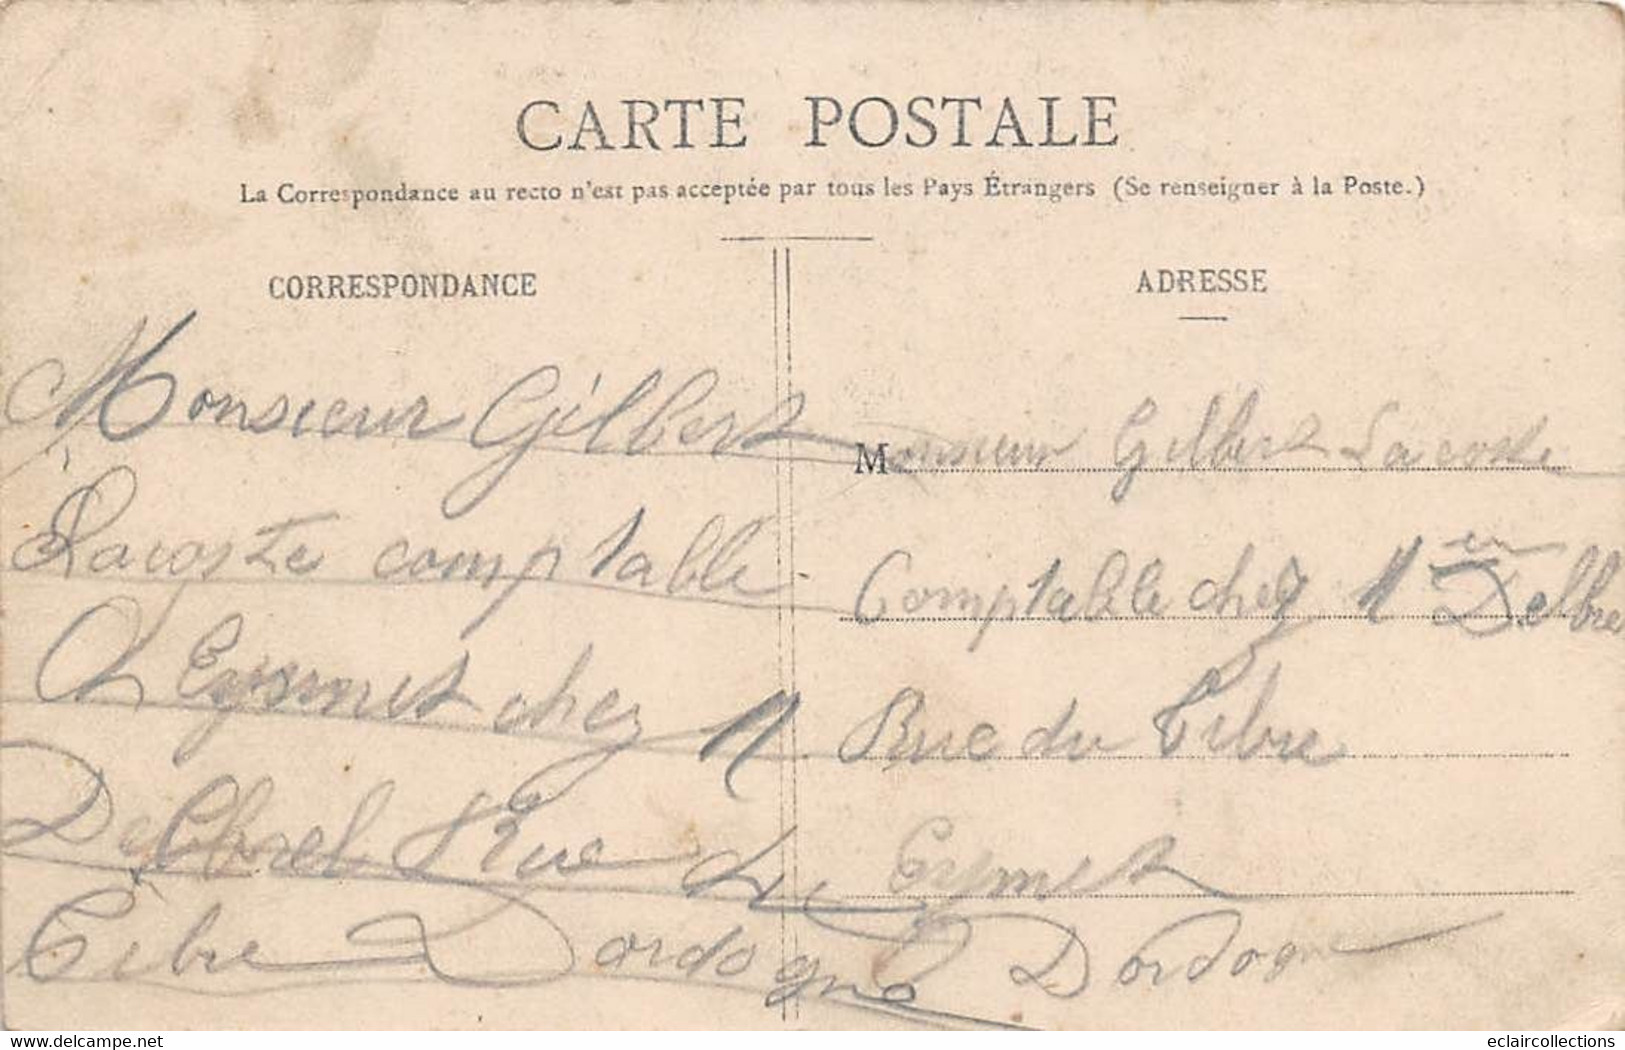 CARTE POSTALE
La Correspondance au recto n'est pas acceptée par tous les Pays Étrangers (Se renseigner à la Poste.)
CORRESPONDANCE
Monsieur Gilbert
Lacoste comptable
a Eysmet chez M
Delbrel Rue du
Tibre Dordogne
ADRESSE
Monsieur Gilbert Lacoste
Comptable chez M Delbre
Rue du Tibre
Eysmet
Dordogne
delcampe.net
eclaircollections